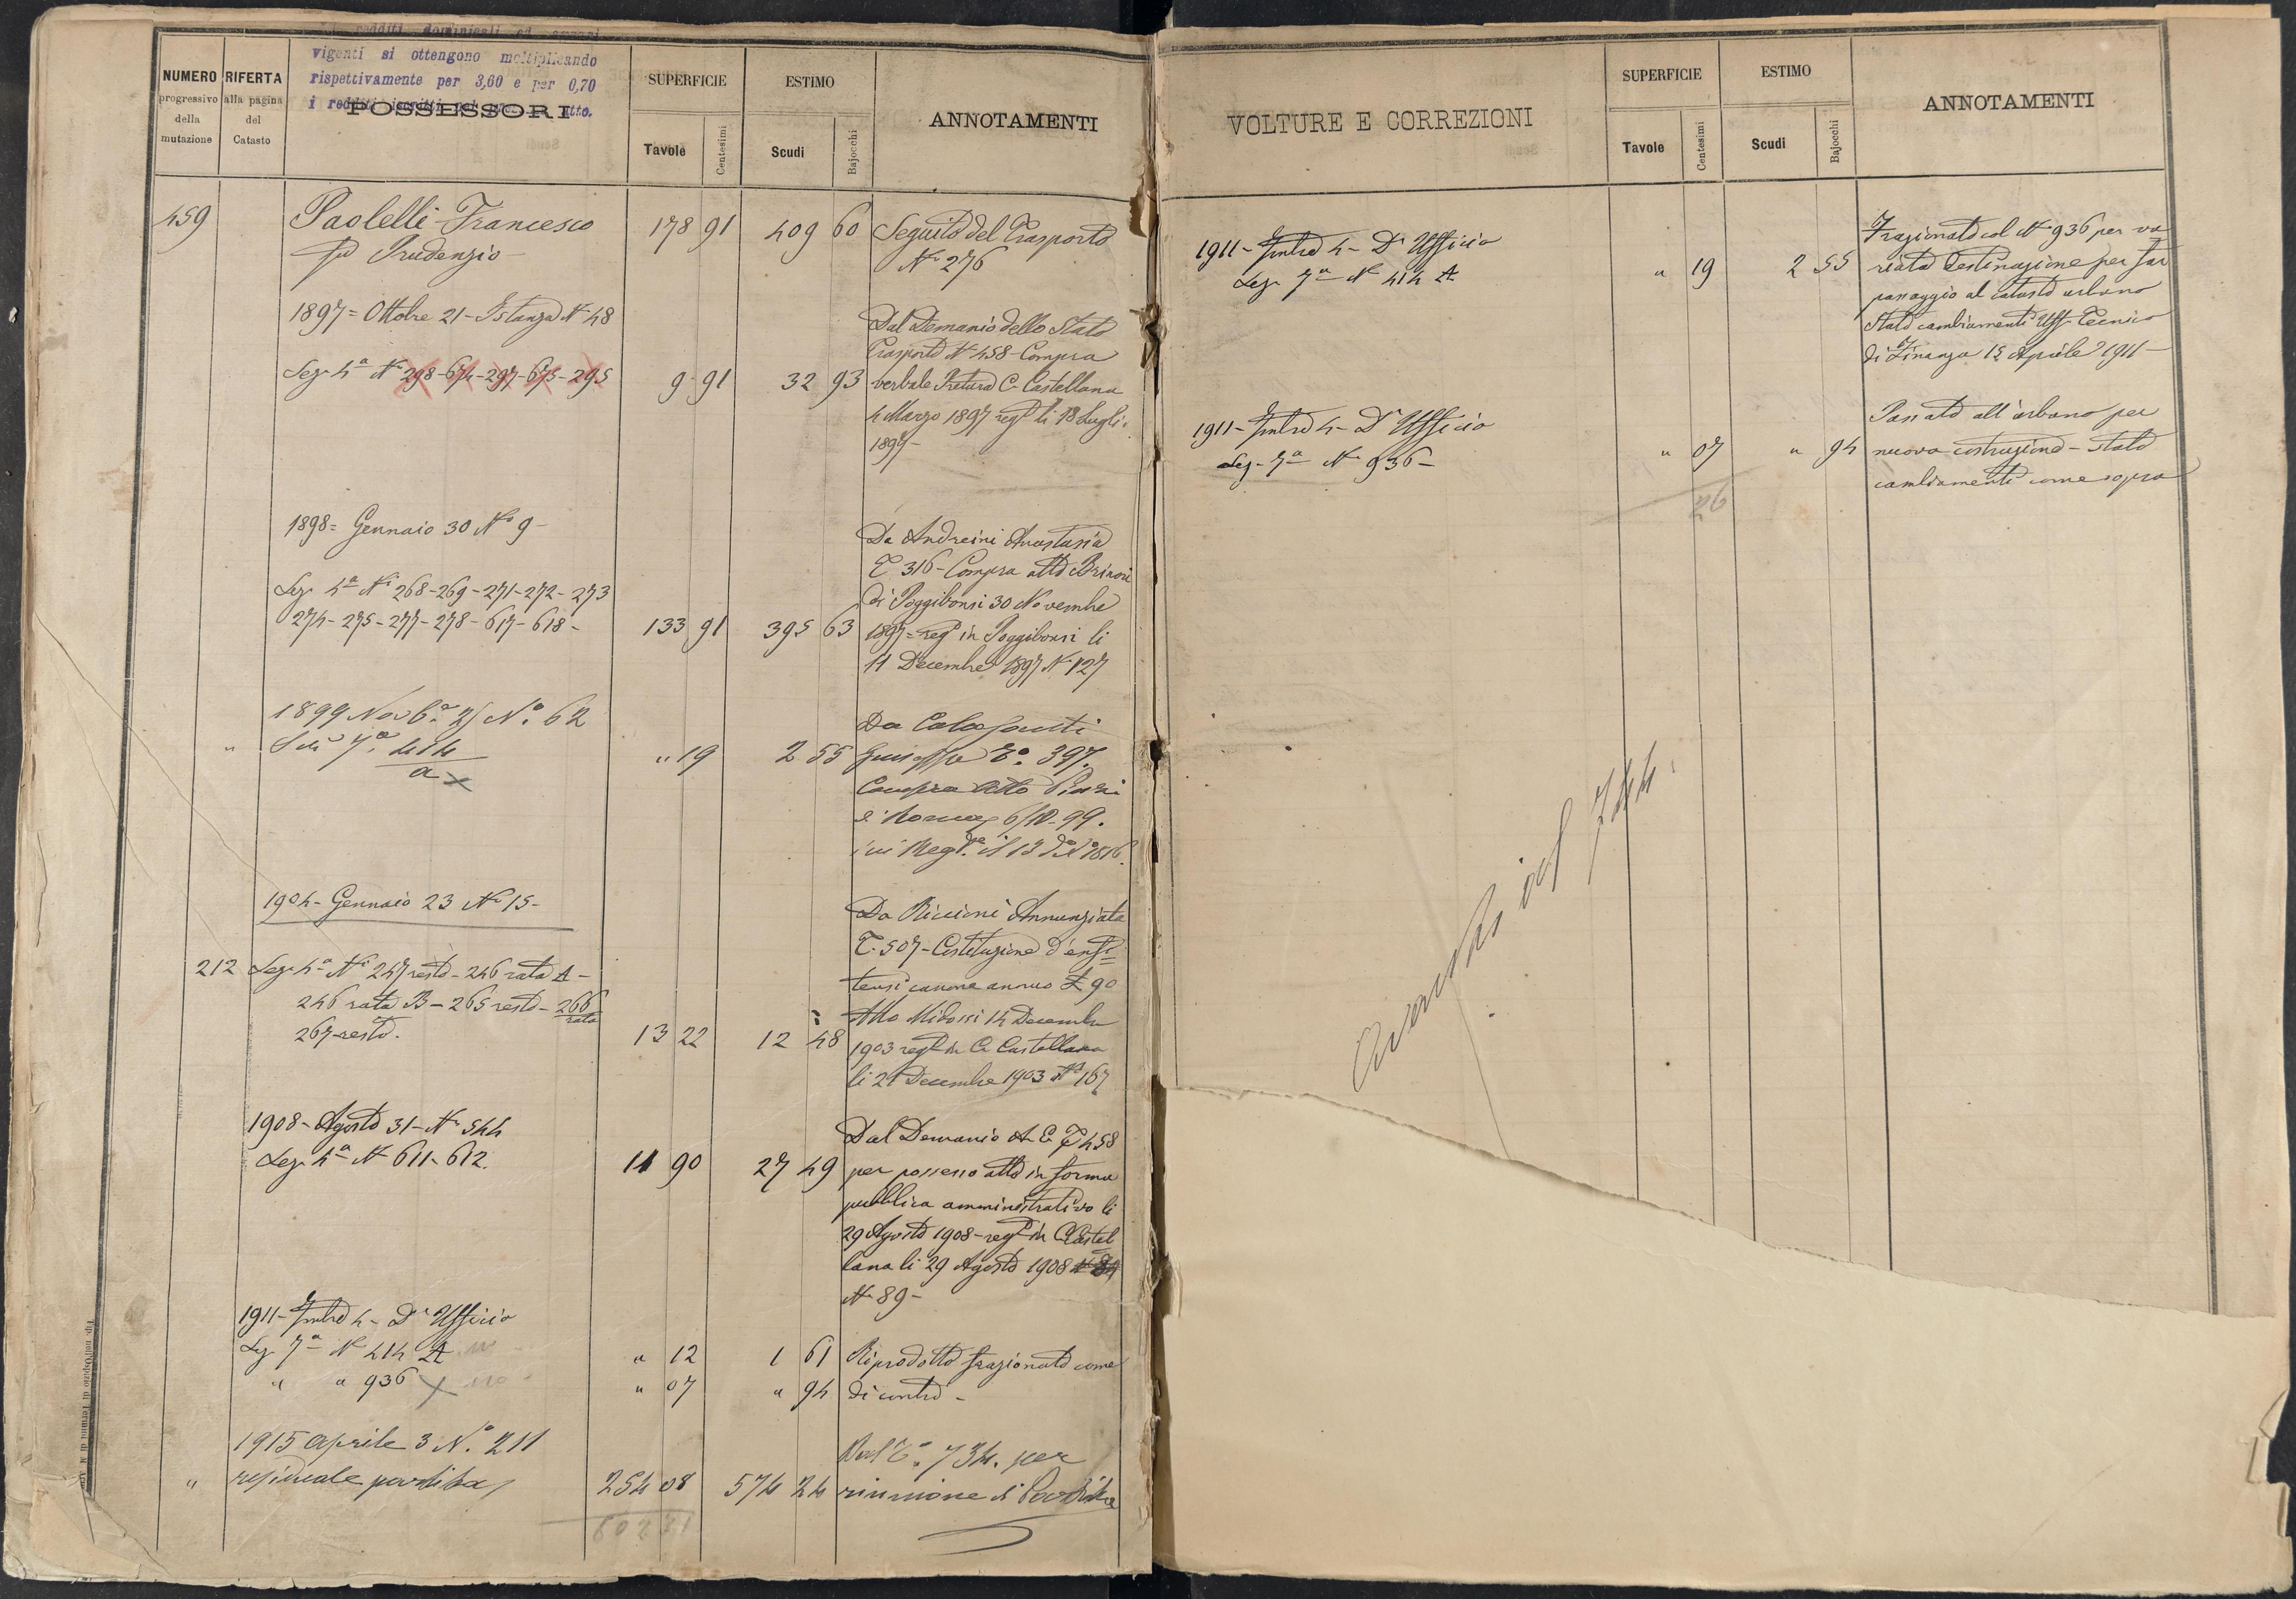 vigenti si ottengono moltiplicando
rispettivamente per 3,60 e per 0,70
NUMERO
progressivo
della
mutazione
RIFERTA
alla pagina
del
Catasto
POSSESSORI
SUPERFICIE
Tavole
Centesimi
ESTIMO
Scudi
Bajocchi
ANNOTAMENTI
459 Paolelli Francesco 178 91 409 60 Seguito del Trasporto
fu Prudenzio - N. 276
1897 = Ottobre 21 - Istanza N. 48
Dal Demanio dello Stato
Trasporto N. 458 - Compra
Sez. 4ª Ni 298-674-297-675-295 9 91 32 93 verbale Pretura C. Castellana
4 Marzo 1897 regto li 18 Lugli.
1897 -
1898 = Gennaio 30 No 9 -
Da Andreini Anastasia
T. 316 - Compra atto
Sez. 4ª Ni 268-269-271-272-273 di Poggibonsi 30 Novembre
274-275-277-278-617-618 - 133 91 395 63 1897 = regto in Poggibonsi li
11 Decembre 1897 N. 127
1899 Novbe 21 No. 62
Da
" Sez 7ª 414 " 19 2 55 Giuseppe To. 397.
a x
Compra Atto
6/10-99.
ivi Regto il 13
1904 - Gennaio 23 N. 15 -
Da Riccioni Annunziata
T. 507 - Costituzione d'enfi=
212 Sez. 4ª Ni 247 resto - 246 rata A - teusi canone annuo £ 90
246 rata B - 265 resto - 266 rata Atto Midossi 14 Decembre
267 resto. 13 22 12 48 1903 regto in C. Castellana
li 21 Decembre 1903 No 167
1908 - Agosto 31 - N. 544
Dal Demanio A. C. T. 458
Sez. 4ª N. 611-612. 11 90 27 49 per possesso atto in forma
pubblica amministrativo li
29 Agosto 1908 - regto in C. Castel
lana li 29 Agosto 1908
N. 89 -
1911 - 4 - D' Ufficio
Sez. 7ª N. 414 A " 12 1 61 Riprodotto frazionato come
" " 936 x " 07 " 94 di contro -
1915 aprile 3 No. 211
Dal To. 734. per
" residuale partita 254 08 574 24 riunione di Partita
602 21
VOLTURE E CORREZIONI
SUPERFICIE
Tavole
Centesimi
ESTIMO
Scudi
Bajocchi
ANNOTAMENTI
Frazionato col N. 936 per va
1911 - 4 - D' Ufficio
Sez. 7ª N. 414 A " 19 2 55 riata destinazione per far
passaggio al catasto urbano
Stato cambiamenti Uff. Tecnico
di Finanza 15 Aprile 1911 -
Passato all'urbano per
1911 - 4 - D' Ufficio
Sez. 7ª N. 936 - " 07 " 94 nuova costruzione - stato
cambiamenti come sopra
26
al 744.